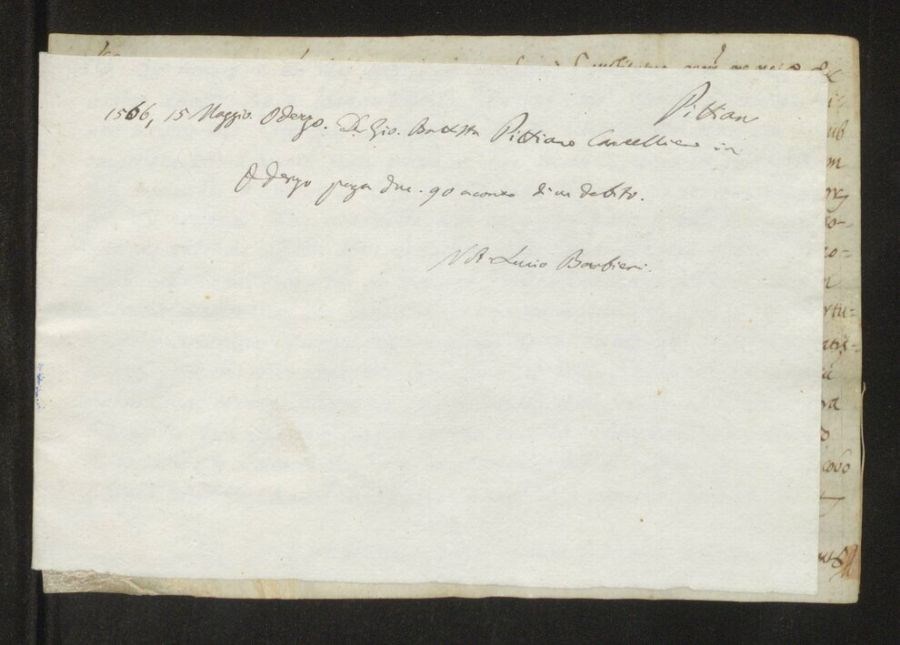 Pittian
1566, 15 Maggio. Oderzo. D. Gio. Battista Pittiano Cancelliere in
Oderzo paga duc. 90 a conto di un debito.
Not. Lucio Barbieri.